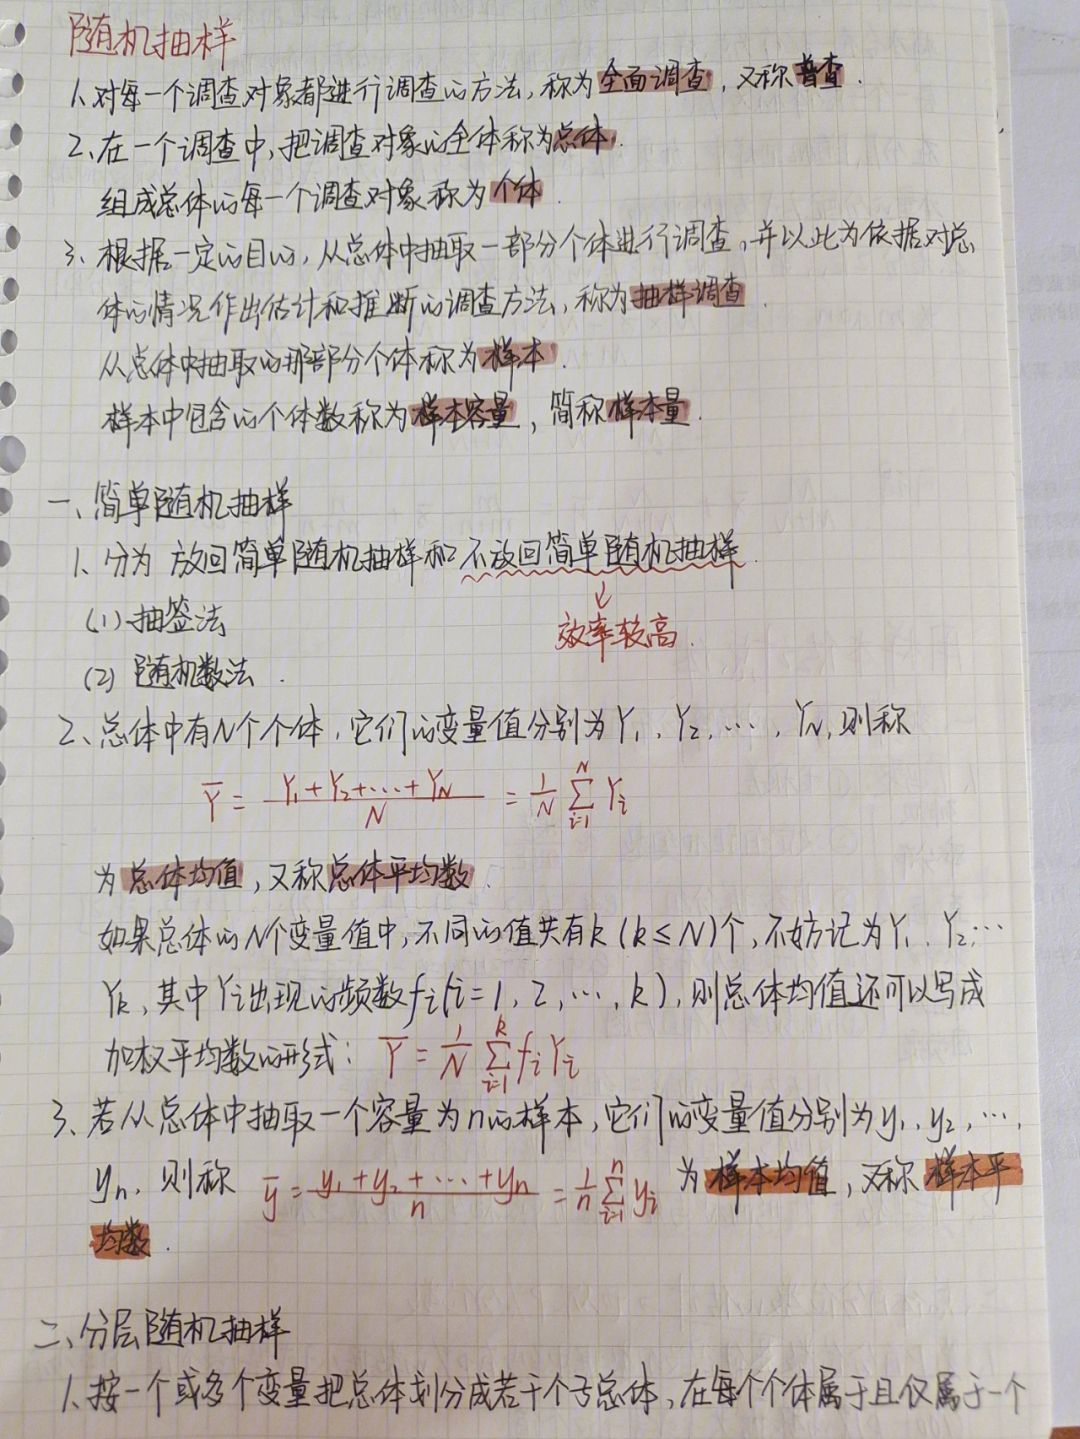 随机抽样
1、对每一个调查对象都进行调查的方法,称为全面调查,又称普查.
2、在一个调查中,把调查对象的全体称为总体.
组成总体的每一个调查对象称为个体.
3、根据一定的目的,从总体中抽取一部分个体进行调查,并以此为依据对总
体的情况作出估计和推断的调查方法,称为抽样调查.
从总体中抽取的那部分个体称为样本.
样本中包含的个体数称为样本容量,简称样本量.
一、简单随机抽样
1、分为 放回简单随机抽样和不放回简单随机抽样.
(1)抽签法
效率较高.
(2)随机数法.
2、总体中有N个个体,它们的变量值分别为Y₁、Y₂、…、Yɴ,则称
Ȳ = (Y₁+Y₂+…+Yɴ)/N = 1/N ∑ᵢ₌₁ᴺ Yᵢ
为总体均值,又称总体平均数.
如果总体的N个变量值中,不同的值共有k(k≤N)个,不妨记为Y₁、Y₂…
Yₖ,其中Yᵢ出现的频数fᵢ(i=1,2,…,k),则总体均值还可以写成
加权平均数的形式: Ȳ = 1/N ∑ᵢ₌₁ᵏ fᵢYᵢ
3、若从总体中抽取一个容量为n的样本,它们的变量值分别为y₁、y₂、…,
yₙ,则称 ȳ = (y₁+y₂+…+yₙ)/n = 1/n ∑ᵢ₌₁ⁿ yᵢ 为样本均值,又称样本平
均数.
二、分层随机抽样
1、按一个或多个变量把总体划分成若干个子总体,在每个个体属于且仅属于一个